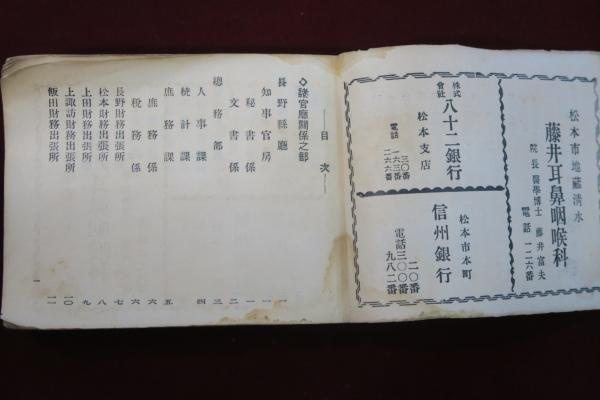 松本市地蔵清水
藤井耳鼻咽喉科
院長 醫學博士 藤井富夫
電話 一二六番
株式會社 八十二銀行
松本支店
電話 三〇番
一六三番
二六六番
松本市本町
信州銀行
電話 二〇番
三〇〇番
九八二番
――目次――
◇諸官廳關係之部
長野縣廳 一
知事官房 一
秘書係 一
文書係 二
總務部 三
人事課 四
統計課
庶務課 五
庶務係 六
稅務係 六
長野財務出張所 七
松本財務出張所 八
上田財務出張所 九
上諏訪財務出張所 一〇
飯田財務出張所 一一
一